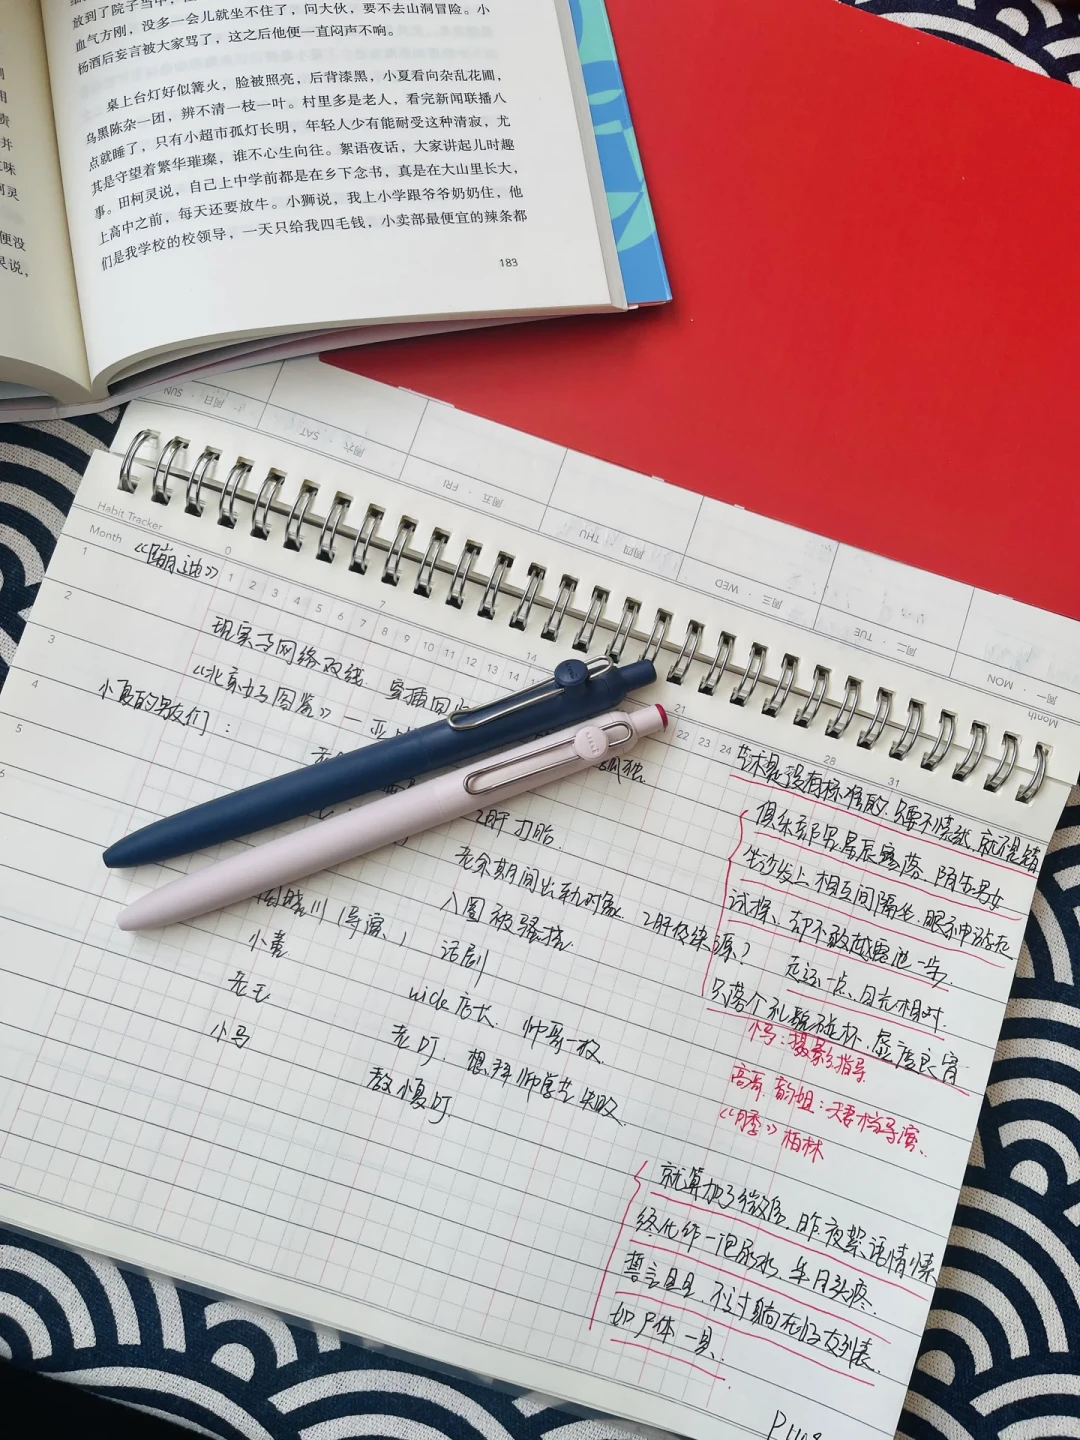 放到了院子当中，
血气方刚，没多一会儿就坐不住了，问大伙，要不去山洞冒险。小
杨酒后妄言被大家骂了，这之后他便一直闷声不响。
桌上台灯好似篝火，脸被照亮，后背漆黑，小夏看向杂乱花圃，
乌黑陈杂一团，辨不清一枝一叶。村里多是老人，看完新闻联播八
点就睡了，只有小超市孤灯长明，年轻人少有能耐受这种清寂，尤
其是守望着繁华璀璨，谁不心生向往。絮语夜话，大家讲起儿时趣
事。田柯灵说，自己上中学前都是在乡下念书，真是在大山里长大，
上高中之前，每天还要放牛。小狮说，我上小学跟爷爷奶奶住，他
们是我学校的校领导，一天只给我四毛钱，小卖部最便宜的辣条都
183
并
味
便没
灵说，
SUN · 周日
SAT · 周六
FRI · 周五
THU · 周四
WED · 周三
TUE · 周二
MON · 周一
Month
Habit Tracker
Month
0 7 14 21 28 31
1 2 3 4 5 6 7 8 9 10 11 12 13 14 22 23 24
1
2
3
4
5
6
《蹦迪》
现实与网络双线. 穿插回
《北京女子图鉴》一
小夏的朋友们：
孤独.
2肝 打胎.
老余期间出轨对象. 2肝传染源？
入圈被骚扰.
周晓川（导演.） 话剧
小袁 wick店长. 帅哥一枚.
老王 老叮. 想拜师学艺失败.
小马 教小夏叮.
艺术是没有标准的. 只要不烧纸. 就不是错
俱乐部吊吊. 星辰寥落. 陌生男女
坐沙发上 相互间隔坐. 眼神中游走
试探. 却不敢越雷池一步.
走远一点. 目光相对.
只落个礼貌碰杯. 显度良宵.
小马：摄影指导.
高哥. 韵姐：夫妻档导演.
《月季》柏林
就算加了微信. 昨夜絮语情愫
终化作一泡尿水. 年月头疼.
誓言旦旦. 不过躺在好友列表.
如尸体一具.